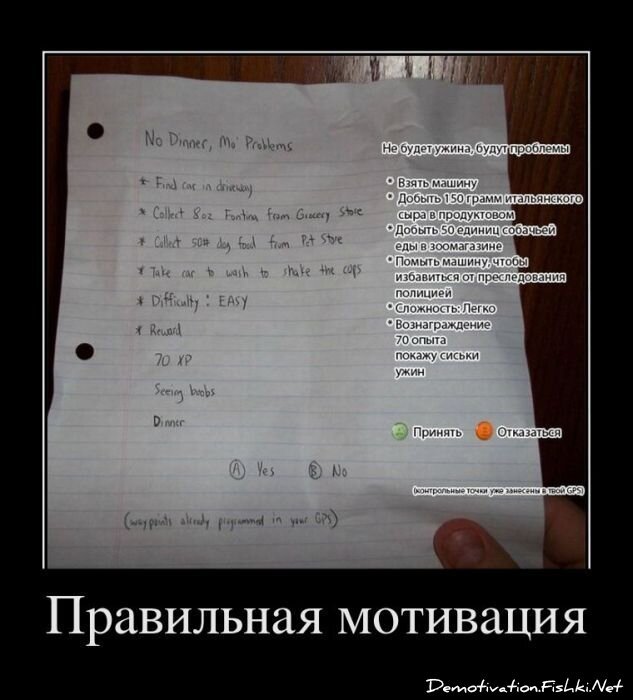 No Dinner, Mo' Problems
* Find car in driveway
* Collect 8oz Fontina from Grocery Store
* Collect 50# dog food from Pet Store
* Take car to wash to shake the cops
* Difficulty: EASY
* Reward
70 XP
Seeing boobs
Dinner
A Yes B No
(waypoints already programmed in your GPS)
Не будет ужина, будут проблемы
* Взять машину
* Добыть 150 грамм итальянского
сыра в продуктовом
* Добыть 50 единиц собачьей
еды в зоомагазине
* Помыть машину, чтобы
избавиться от преследования
полицией
* Сложность: Легко
* Вознаграждение
70 опыта
покажу сиськи
ужин
Принять Отказаться
(контрольные точки уже занесены в твой GPS)
Правильная мотивация
Demotivation.Fishki.Net